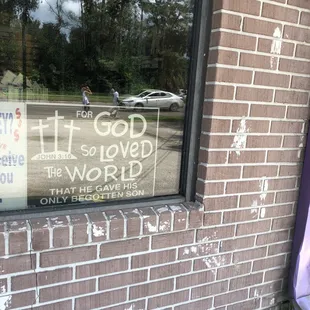 FOR
GOD
JOHN 3:16
SO LOVED
THE WORLD
THAT HE GAVE HIS
ONLY BEGOTTEN SON
EY?
ceive
ou